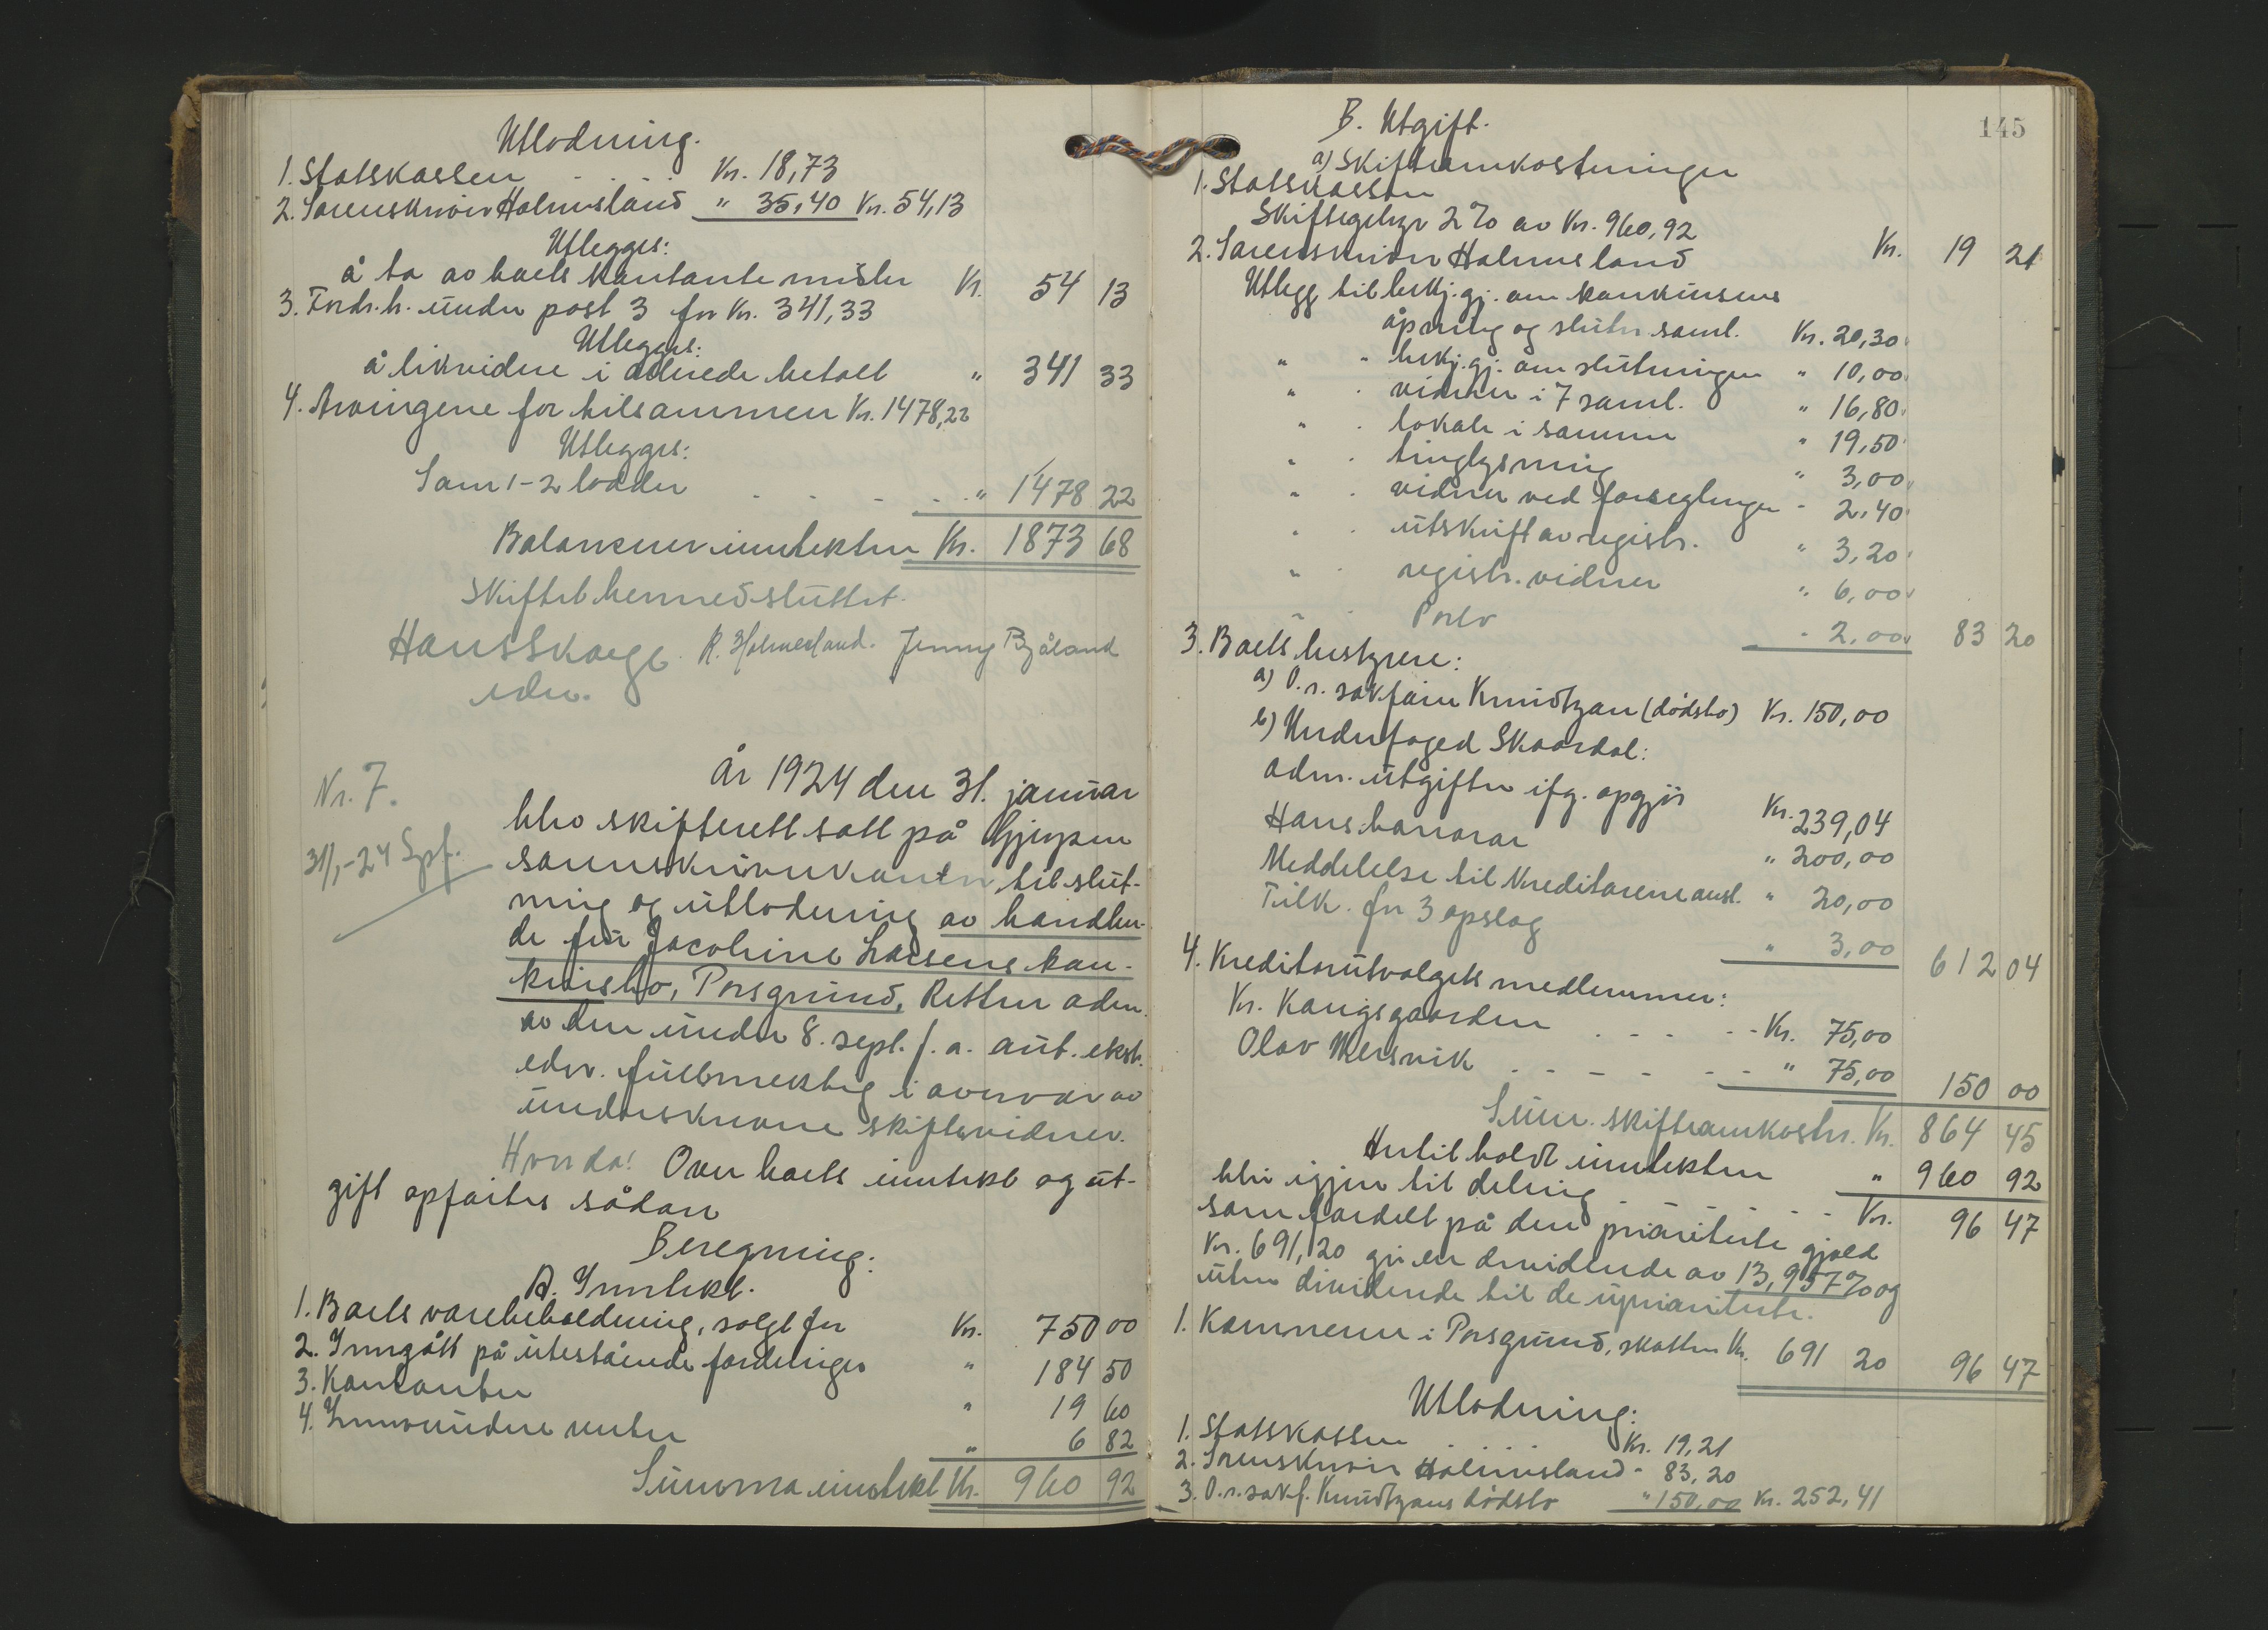 Utlodning.
1. Statskassen . . . . Kr. 18,73
2. Sorenskriver Holmesland " 35,40 Kr. 54,13
Utlegges:
å ta av boets kontante midler Kr. 54 13
3. Fordr.h. under post 3 for Kr. 341,33
Utlegges:
å likvidere i allerede betalt " 341 33
4. Arvingene for tilsammen Kr. 1478,22
Utlegges:
Som 1-2 lodder . . . . . " 1478 22
Balanserer inntekten Kr. 1873 68
Skiftet hermed sluttet.
Hans Skaega R. Holmesland. Jenny Bjåland
edsv.
Nr. 7.
31/1-24 Spf.
År 1924 den 31. januar
blev skifterett satt på Gjerpen
sorenskriverkontor, til slut-
ning og utlodning av handlen-
de fru Jacobine Larsens kon-
kursbo, Porsgrund. Retten adm.
av den under 8. sept. f. a. aut. ekstr.
edsv. fullmektig i overvær av
underskrevne skiftevidner.
Hvorda! Over boets inntekt og ut-
gift opførtes sådan
Beregning:
A. Inntekt.
1. Boets varebeholdning, solgt for Kr. 750 00
2. Inngått på utestående fordringer " 184 50
3. Kontanter " 19 60
4. Innvundne renter " 6 82
Summa inntekt Kr. 960 92
145
B. Utgift.
a) Skifteomkostninger
1. Statskassen
Skiftegebyr 2% av Kr. 960,92 Kr. 19 21
2. Sorenskriver Holmesland
Utlegg til bekj.gj. om konkursens
åpning og slutn. saml. Kr. 20,30
" " bekj.gj. om slutningen " 10,00
" " vidner i 7 saml. " 16,80
" " lokale i samme " 19,50
" " tinglysning " 3,00
" " vidner ved forseglingen - 2,40
" " utskrift av registr. " 3,20
" " registr. vidner " 6,00
" " Porto - 2,00 83 20
3. Boets bestyrere:
a) O.r. sakfører Knudtzon (dødsbo) Kr. 150,00
b) Underfoged Skaardal:
adm. utgifter ifg. opgjør Kr. 239,04
Hans honorar " 200,00
Meddelelse til kreditorene ansl. " 20,00
Tilk. for 3 opslag " 3,00 612 04
4. Kreditorutvalgets medlemmer:
Kr. Kongsgaarden . . . - - Kr. 75,00
Olav Mersvik . - - - - - " 75,00 150 00
Sum. skifteomkostn. Kr. 864 45
Hertil holdt inntekten " 960 92
blir igjen til deling - - - - Kr. 96 47
som fordelt på den prioriterte gjæld
Kr. 691,20 gir en dividende av 13,957% og
uten dividende til de uprioriterte.
1. Kemneren i Porsgrund, skatter Kr. 691 20 96 47
Utlodning:
1. Statskassen . . . . Kr. 19,21
2. Sorenskriver Holmesland - 83,20
3. O.r.sakf. Knudtzons dødsbo " 150,00 Kr. 252,41